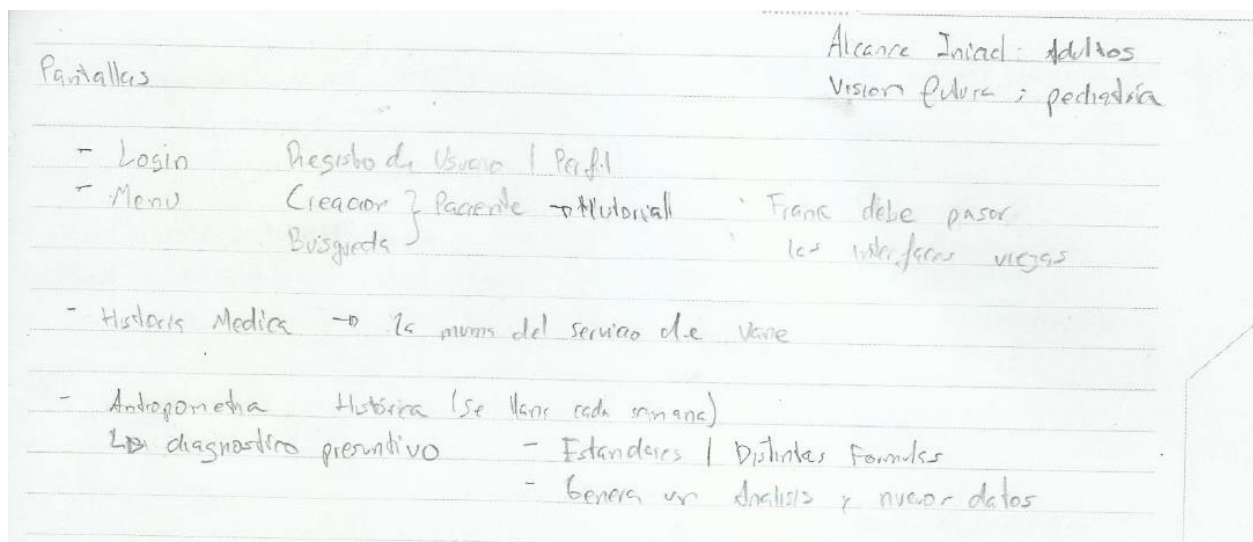 Alcance Inicial: Adultos
Pantallas
Vision futura: pediatría
- Login Registro de Usuario | Perfil
- Menu Creacion } Paciente → Tutorial
Búsqueda
Franc debe pasar
las interfaces viejas
- Historia Medica → la misma del servicio de Vane
- Antropometria Histórica (se llena cada semana)
↳ diagnostico presuntivo - Estandares | Distintas Formulas
- Genera un Analisis y nuevos datos